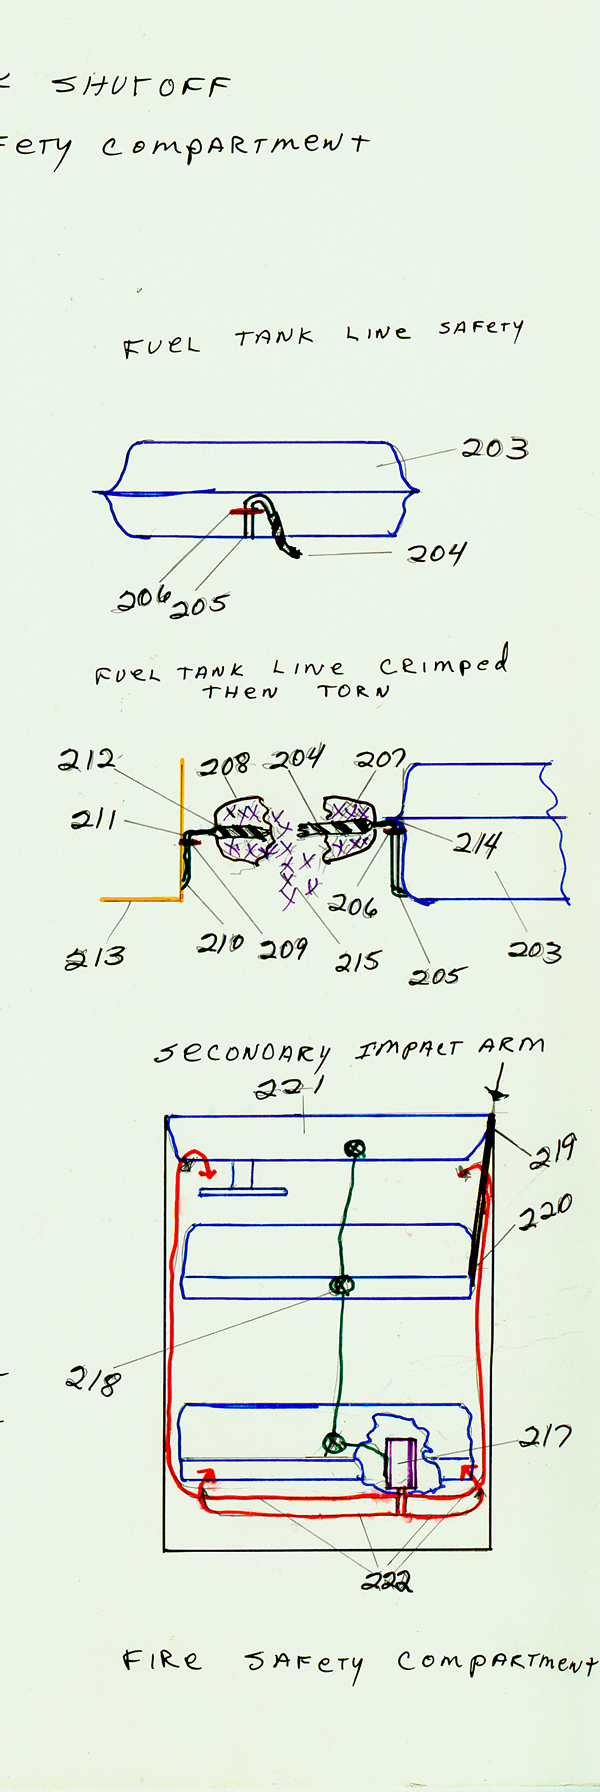 SHUTOFF
FETY COMPARTMENT
FUEL TANK LINE SAFETY
203
204
206 205
FUEL TANK LINE CRIMPED
THEN TORN
212 208 204 207
211
214
206
213 210 209 215 205 203
SECONDARY IMPACT ARM
221
219
220
218
217
222
FIRE SAFETY COMPARTMENT